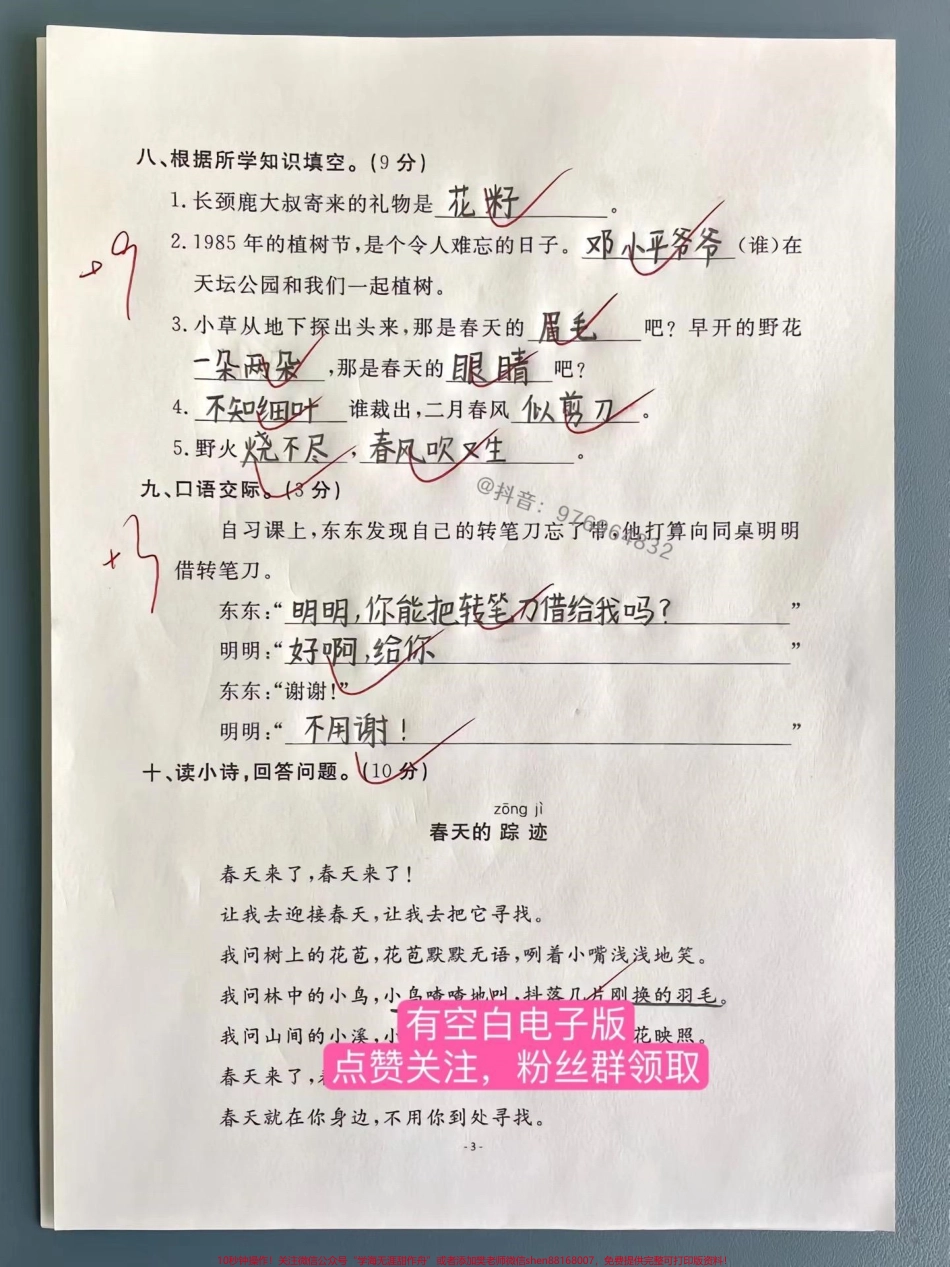 八、根据所学知识填空。(9分)
1.长颈鹿大叔寄来的礼物是 花籽 。
2.1985年的植树节,是个令人难忘的日子。邓小平爷爷(谁)在
天坛公园和我们一起植树。
+9
3.小草从地下探出头来,那是春天的 眉毛 吧?早开的野花
一朵两朵,那是春天的 眼睛 吧?
4. 不知细叶 谁裁出,二月春风 似剪刀 。
5.野火 烧不尽 , 春风吹又生 。
九、口语交际。(3分)
@抖音:976964832
自习课上,东东发现自己的转笔刀忘了带,他打算向同桌明明
借转笔刀。
+3
东东:“明明,你能把转笔刀借给我吗?”
明明:“好啊,给你”
东东:“谢谢!”
明明:“不用谢!”
十、读小诗,回答问题。(10分)
zōng jì
春天的 踪 迹
春天来了,春天来了!
让我去迎接春天,让我去把它寻找。
我问树上的花苞,花苞默默无语,咧着小嘴浅浅地笑。
我问林中的小鸟,小鸟喳喳地叫,抖落几片刚换的羽毛。
我问山间的小溪,小 花映照。
有空白电子版
点赞关注,粉丝群领取
春天来了,
春天就在你身边,不用你到处寻找。
-3-
10秒钟操作!关注微信公众号“学海无涯甜作舟”或者添加樊老师微信shen88168007,免费提供完整可打印版资料!